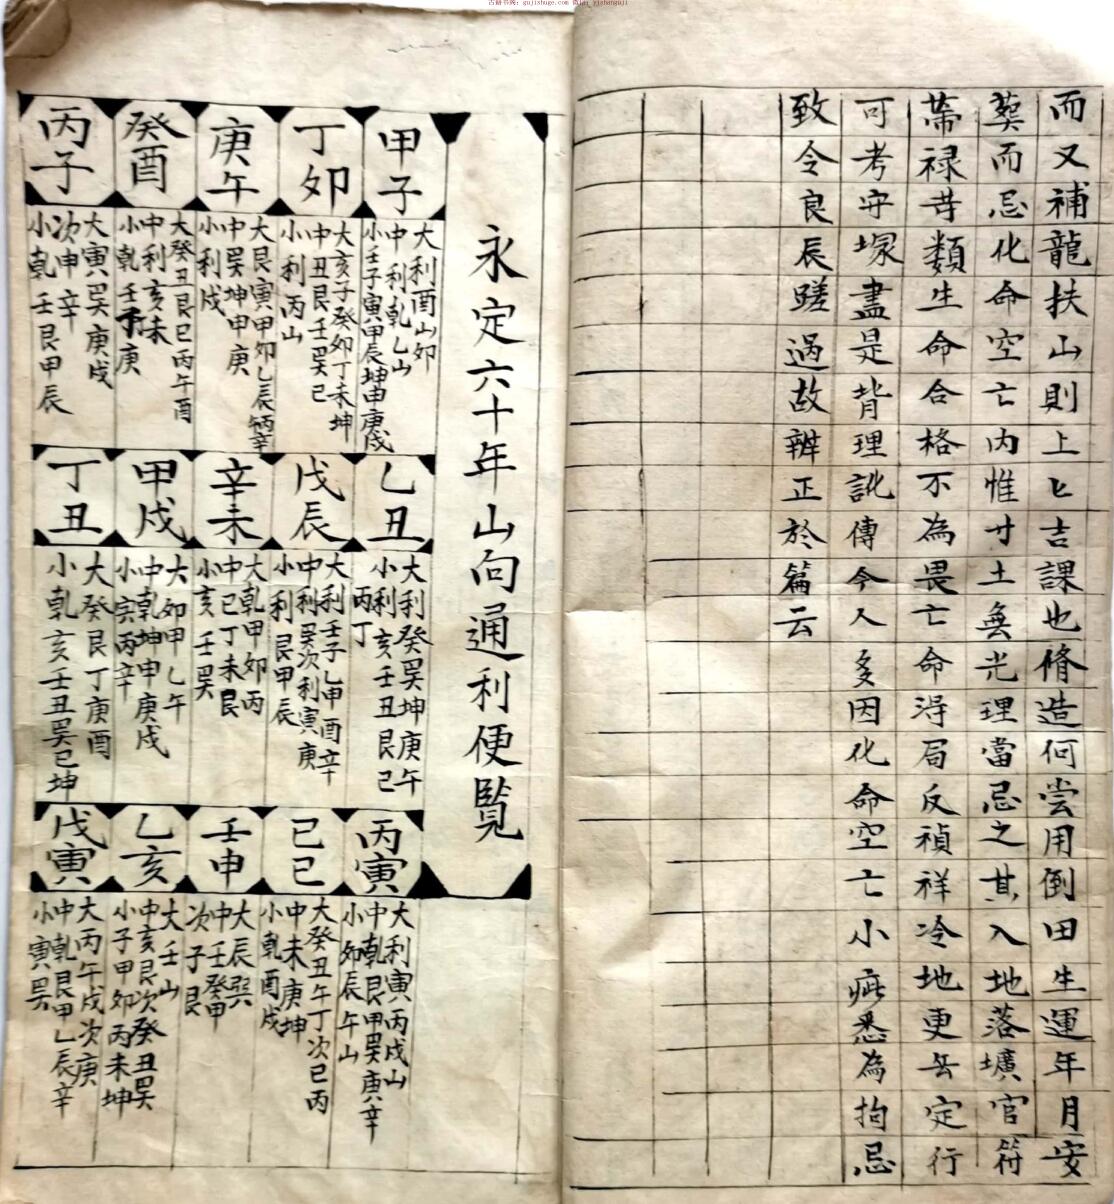 古籍书阁：gujishuge.com 微信：yishanguji
而又補龍扶山則上匕吉課也脩造何嘗用倒田生運年月安
葬而忌化命空亡内惟寸土無光理當忌之其入地落壙官符
禄䒭類生命合格不為畏亡命淂局反禎祥冷地更去定行
可考守塚盡是背理訛傳今人多因化命空亡小疵悉為拘忌
致令良辰蹉過故辨正於篇云
永定六十年山向通利便覽
甲子
大利酉山卯
中利乾乙山
小壬子寅甲辰坤申庚戌
丁卯
大亥子癸卯丁未坤
中丑艮壬巽巳
小利丙山
庚午
大艮寅甲卯乙辰丙辛
中巽坤申庚
小利戌
癸酉
大癸丑艮巳丙午酉
中利亥未
小乾壬子庚
丙子
大寅巽庚戌
次申辛
小乾壬艮甲辰
乙丑
大利癸巽坤庚午
小利亥壬丑艮巳
丙丁
戊辰
大利壬子乙申酉辛
中利巽次利寅庚
小利艮甲辰
辛未
大乾甲卯丙
中巳丁未艮
小亥壬巽
甲戌
大卯甲乙午
中乾坤申庚戌
小寅丙辛
丁丑
大癸艮丁庚酉
小乾亥壬丑巽巳坤
丙寅
大利寅丙戌山
中乾艮甲巽庚辛
小卯辰午山
己巳
大癸丑午丁次巳丙
中未庚坤
小乾酉戌
壬申
大辰巽
中壬癸甲
次子艮
乙亥
大壬山
中亥艮次癸丑巽
小子甲卯丙未坤
戊寅
大丙午戌次庚
中乾艮甲乙辰辛
小寅巽